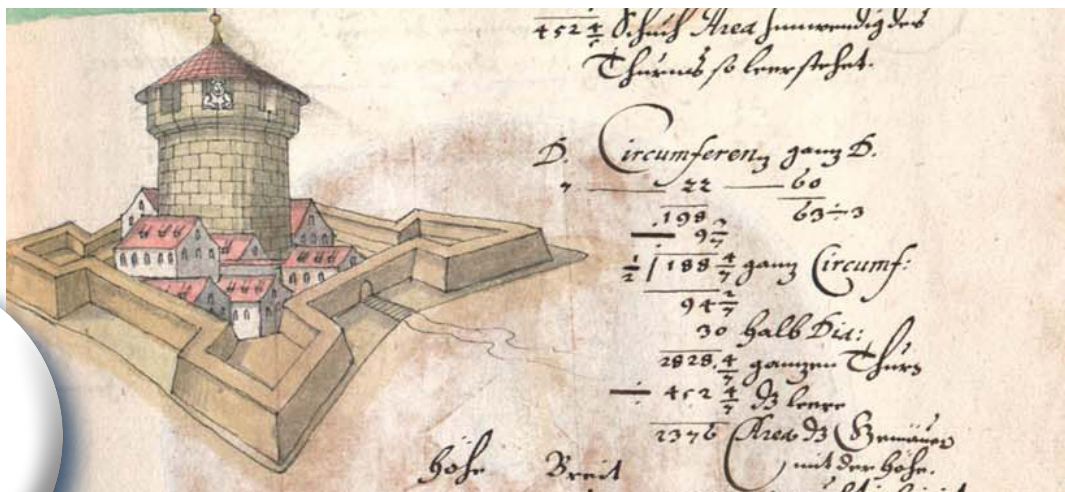 452 4/7 Schuch Area Innwendig des
Thurms so leer stehet.
D. Circumferenz ganz D.
7 — 22 — 60
198 63÷3
— 9 3/7
1/2 / 188 4/7 ganz Circumf:
94 2/7
30 halb Dia:
2828 4/7 ganzen Thurn
÷ 452 4/7 dz leere
2376 Area dz Gemäuer
mit der Höhe.
Höhe Breit